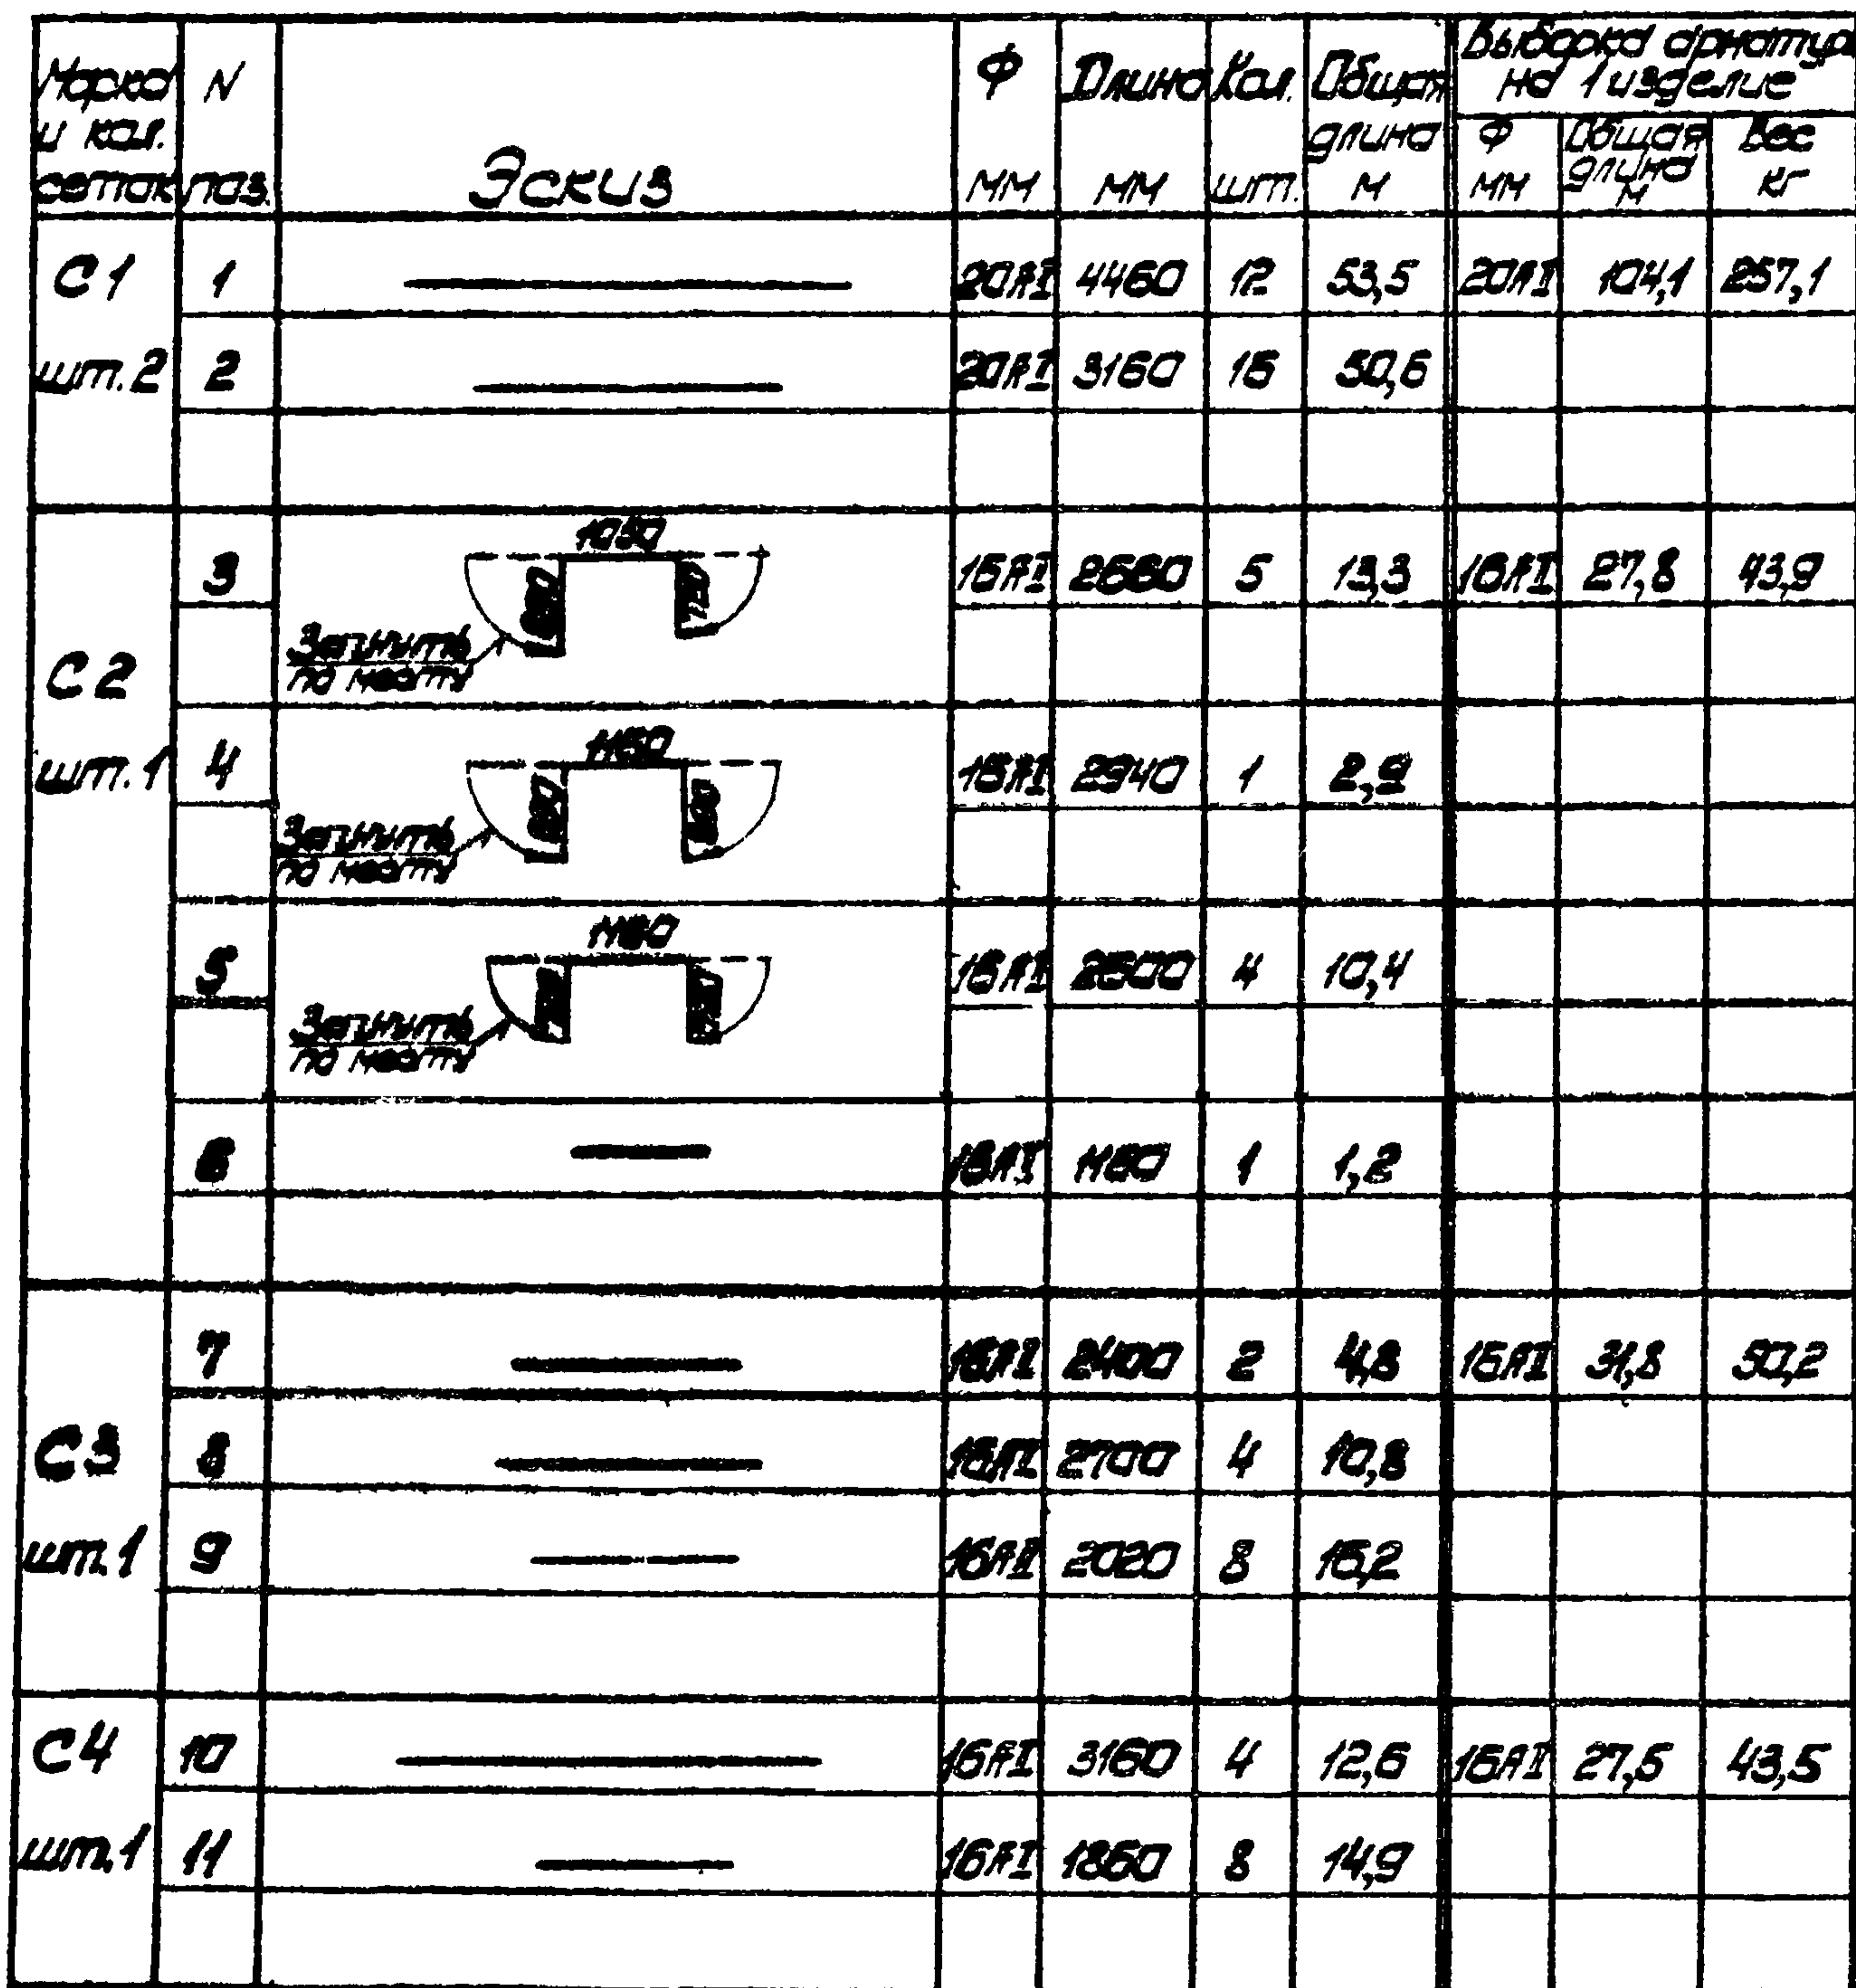 Марка и кол. сеток
N поз.
Эскиз
Ф мм
Длина мм
Кол. шт.
Общая длина м
Выборка арматур на 1 изделие
Ф мм
Общая длина м
Вес кг
С1 шт.2
1 20АI 4460 12 53,5 20АI 104,1 257,1
2 20АI 3160 16 50,6
С2 шт.1
3 1030 16АI 2660 5 13,3 16АI 27,8 43,9
Загнуть по месту
4 16АI 2940 1 2,9
Загнуть по месту
5 1180 16АI 2600 4 10,4
Загнуть по месту
6 16АI 1180 1 1,2
С3 шт.1
7 16АI 2400 2 4,8 16АI 31,8 50,2
8 16АI 2700 4 10,8
9 16АI 2020 8 16,2
С4 шт.1
10 16АI 3160 4 12,6 16АI 27,5 43,5
11 16АI 1860 8 14,9